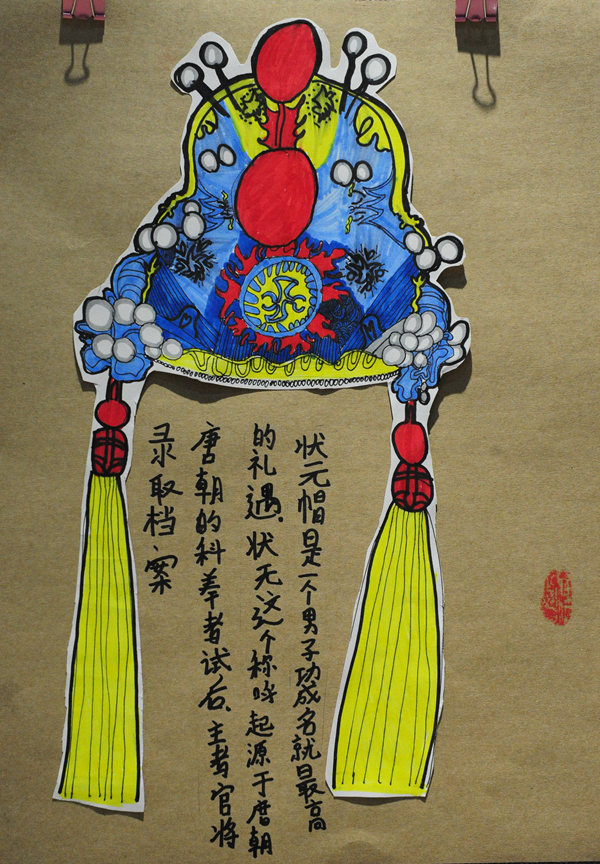 状元帽是一个男子功成名就最高
的礼遇、状元这个称呼起源于唐朝
唐朝的科举考试后、主考官将
录取档案